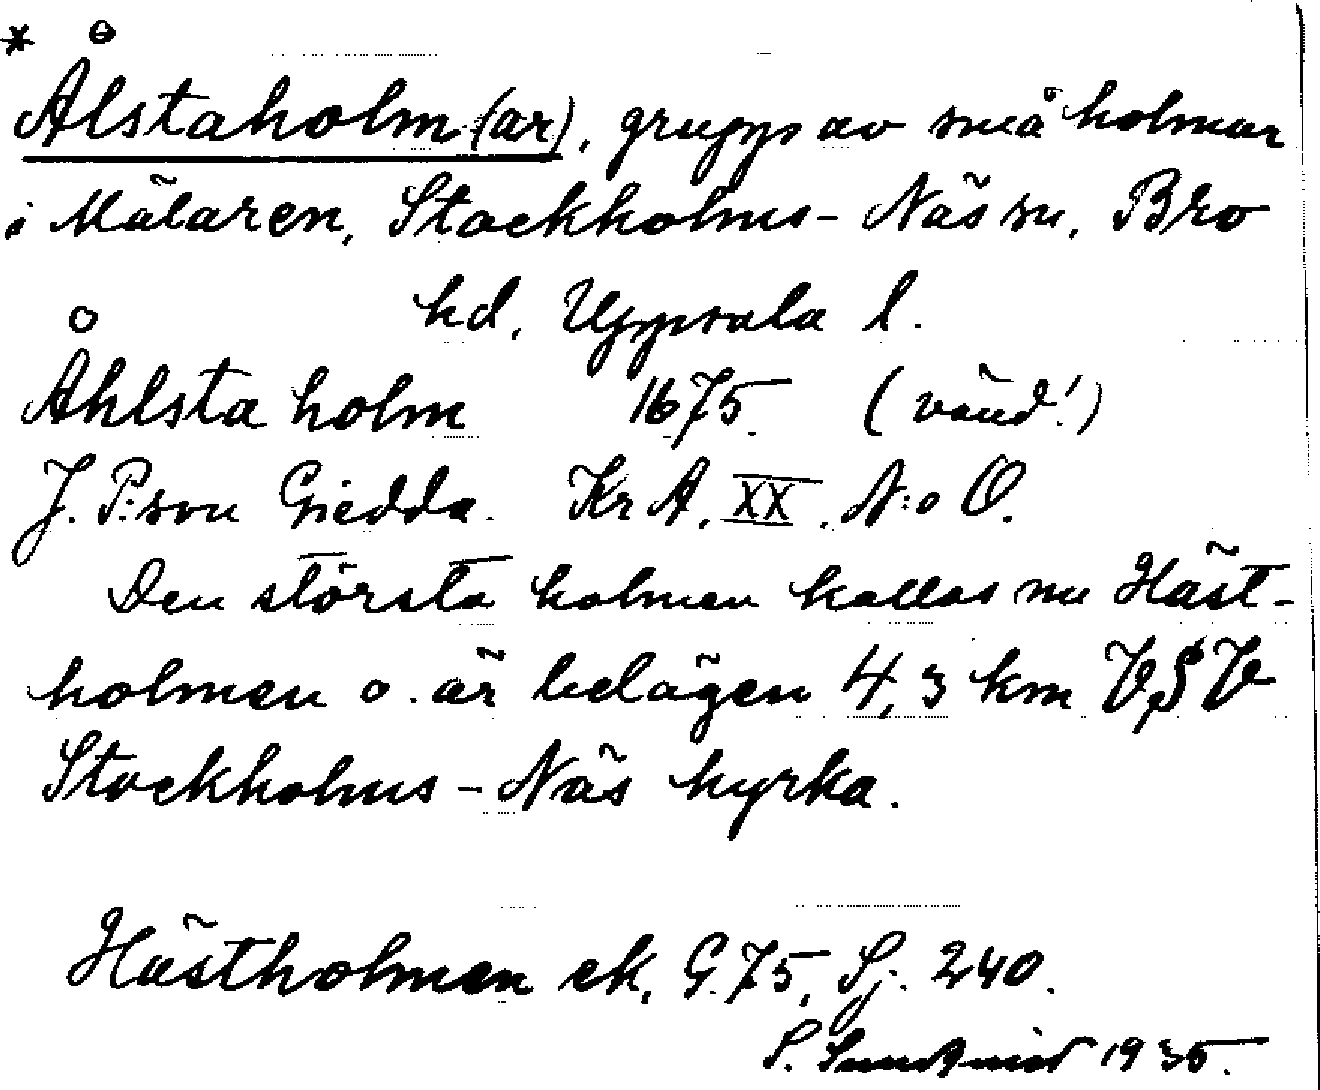 * Ålstaholm(ar), grupp av små holmar
i Mälaren, Stockholms-Näs sn, Bro
hd, Uppsala l.
Åhlsta holm 1675 (vänd!)
J. P:son Giedda. Kr A. XX. N:o O.
Den största holmen kallas nu Häst-
holmen o. är belägen 4,3 km VSV
Stockholms-Näs kyrka.
Hästholmen ek. G. 75, Sj. 240.
S. 1935.